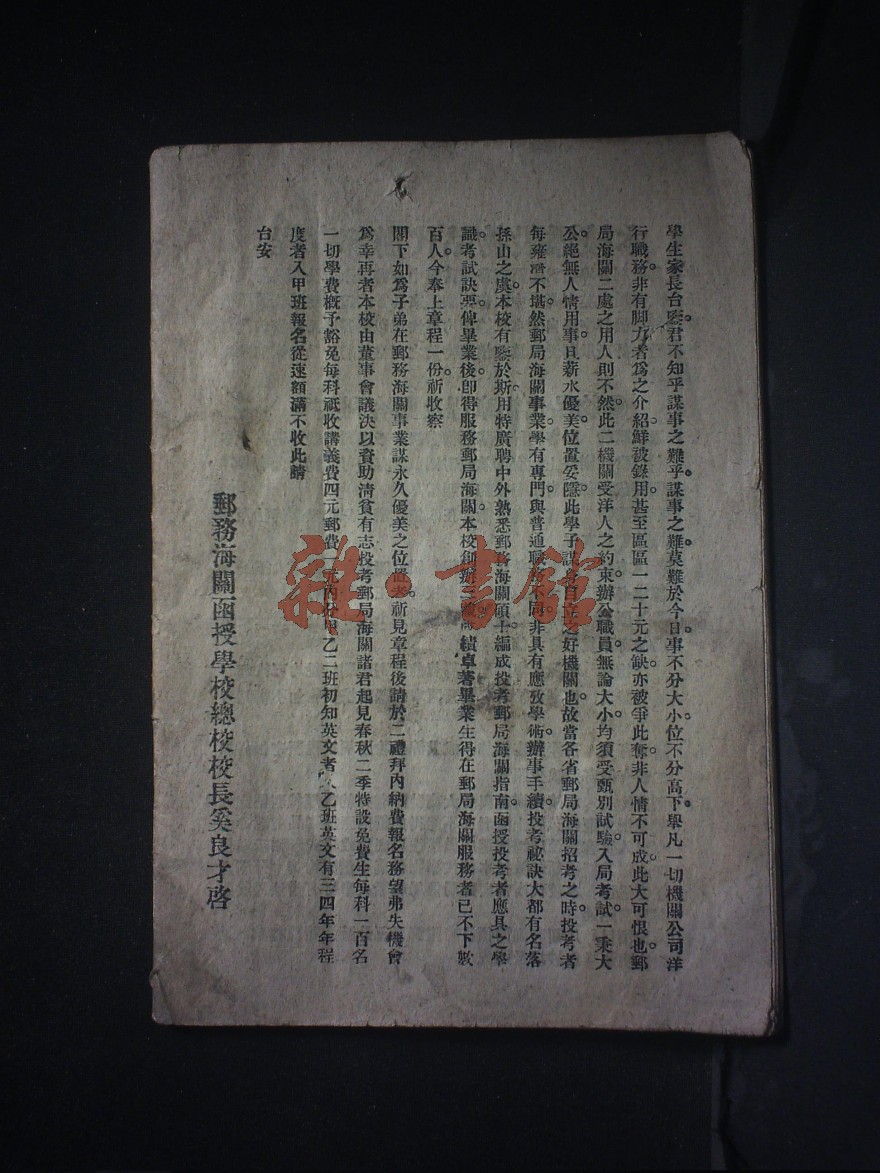 學生家長台鑒君不知乎謀事之難乎謀事之難莫難於今日事不分大小位不分高下舉凡一切機關公司洋
行職務非有脚力者爲之介紹鮮被錄用甚至區區一二十元之缺亦被爭此奪非人情不可成此大可恨也郵
局海關二處之用人則不然此二機關受洋人之約束辦公職員無論大小均須受甄別試驗入局考試一秉大
公絕無人情用事且薪水優美位置妥隱此學子謀自立之好機關也故當各省郵局海關招考之時投考者
每雍濟不堪然郵局海關事業學有專門與普通職不同非具有應攷學術辦事手續投考祕訣大都有名落
孫山之虞本校有鑒於斯用特廣聘中外熟悉郵務海關碩士編成投考郵局海關指南函授投考者應具之學
識考試訣要俾畢業後卽得服務郵局海關本校創辦三績卓著畢業生得在郵局海關服務者已不下數
百人今奉上章程一份祈收察
閣下如爲子弟在郵務海關事業謀永久優美之位置者祈見章程後請於二禮拜內納費報名務望弗失機會
爲幸再者本校由董事會議決以資助淸貧有志投考郵局海關諸君起見春秋二季特設免費生每科一百名
一切學費概予豁免每科祇收講義費四元郵費一元內分甲乙二班初知英文者入乙班英文有三四年年程
度者入甲班報名從速額滿不收此請
台安
郵務海關函授學校總校校長奚良才啓
雜·書館